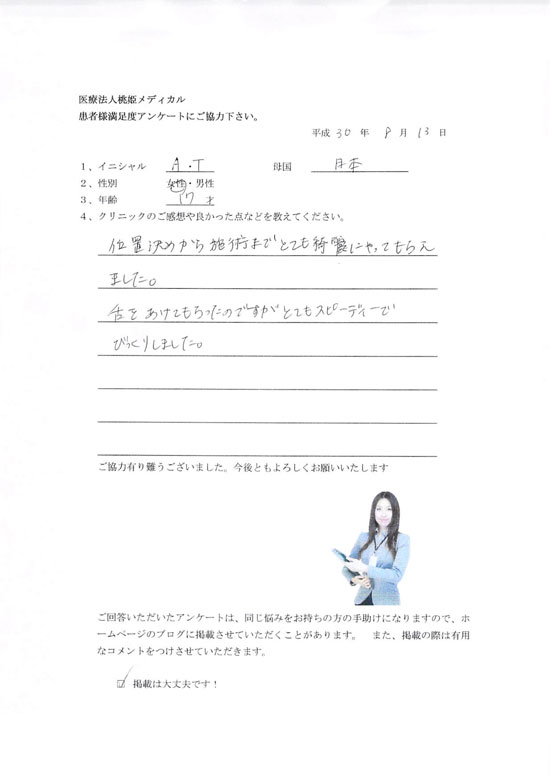 医療法人桃姫メディカル
患者様満足度アンケートにご協力下さい。
平成 30 年 8 月 13 日
1、イニシャル A・T 母国 日本
2、性別 女性・男性
3、年齢 17 才
4、クリニックのご感想や良かった点などを教えてください。
位置決めから施術までとても綺麗にやってもらえ
ました。
舌をあけてもらったのですがとてもスピーディーで
びっくりしました。
ご協力有り難うございました。今後ともよろしくお願いいたします
ご回答いただいたアンケートは、同じ悩みをお持ちの方の手助けになりますので、ホ
ームページのブログに掲載させていただくことがあります。 また、掲載の際は有用
なコメントをつけさせていただきます。
☑ 掲載は大丈夫です！